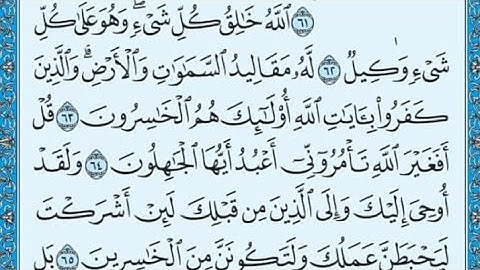 ٦١ ٱللَّهُ خَـٰلِقُ كُلِّ شَىْءٍۢ ۖ وَهُوَ عَلَىٰ كُلِّ
شَىْءٍۢ وَكِيلٌۭ ٦٢ لَّهُۥ مَقَالِيدُ ٱلسَّمَـٰوَٰتِ وَٱلْأَرْضِ ۗ وَٱلَّذِينَ
كَفَرُوا۟ بِـَٔايَـٰتِ ٱللَّهِ أُو۟لَـٰٓئِكَ هُمُ ٱلْخَـٰسِرُونَ ٦٣ قُلْ
أَفَغَيْرَ ٱللَّهِ تَأْمُرُوٓنِّىٓ أَعْبُدُ أَيُّهَا ٱلْجَـٰهِلُونَ ٦٤ وَلَقَدْ
أُوحِىَ إِلَيْكَ وَإِلَى ٱلَّذِينَ مِن قَبْلِكَ لَئِنْ أَشْرَكْتَ
لَيَحْبَطَنَّ عَمَلُكَ وَلَتَكُونَنَّ مِنَ ٱلْخَـٰسِرِينَ ٦٥ بَلِ